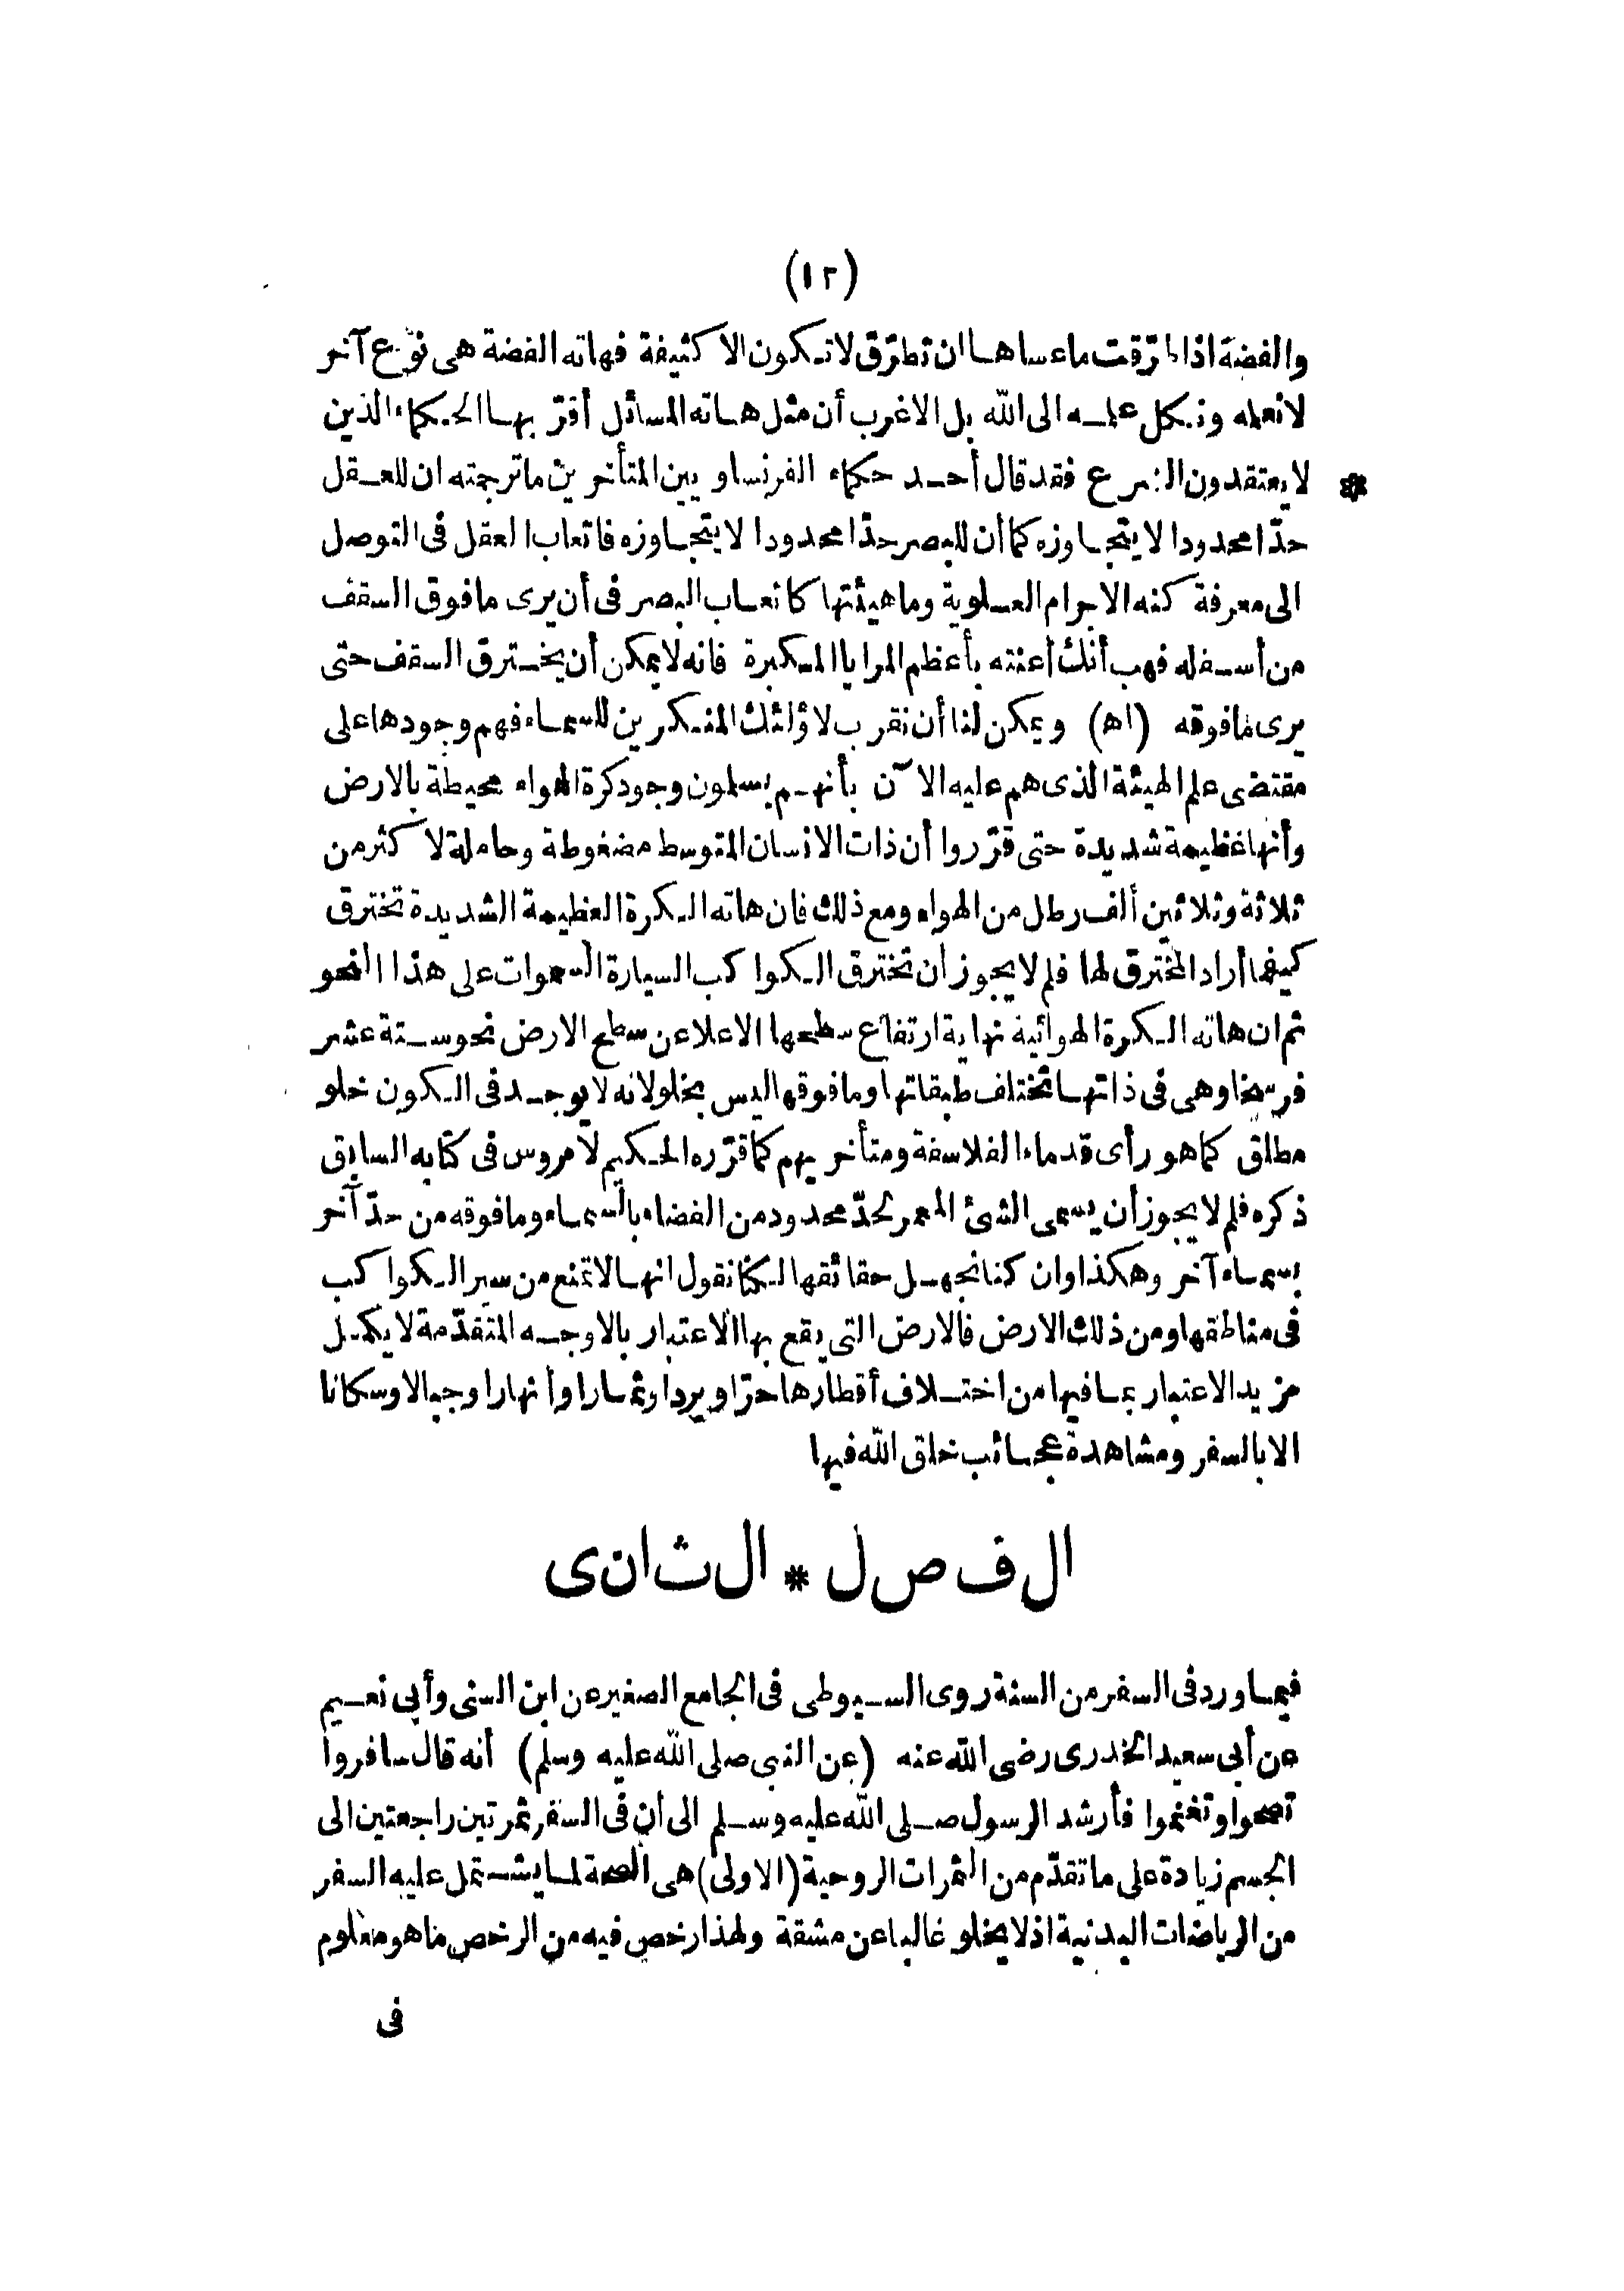 (١٢)
والفضة اذا طرّقت ماعساها ان تطرّق لا تكون الا كثيفة فهاته الفضة هى نوع آخر
لا نعلمه ونكل علمه الى الله بل الاغرب أن مثل هاته المسائل أقرّ بها الحكماء الذين
* لا يعتقدون الشرع فقد قال أحد حكماء الفرنساويين المتأخرين ما ترجمته ان للعقل
حدّا محدودا لا يتجاوزه كما أن للبصر حدّا محدودا لا يتجاوزه فاتعاب العقل فى التوصل
الى معرفة كنه الاجرام العلوية وما هيئتها كاتعاب البصر فى أن يرى ما فوق السقف
من أسفله فهب أنك أعنته بأعظم المرايا المكبرة فانه لا يمكن أن يخترق السقف حتى
يرى ما فوقه (اه) ويمكن لنا أن نقرب لاؤلئك المنكرين للسماء فهم وجودها على
مقتضى علم الهيئة الذى هم عليه الآن بأنهم يسلمون وجود كرة الهواء محيطة بالارض
وأنها عظيمة شديدة حتى قرّروا أن ذات الانسان المتوسط مضغوطة وحاملة لاكثر من
ثلاثة وثلاثين ألف رطل من الهواء ومع ذلك فان هاته الكرة العظيمة الشديدة تخترق
كيفما أراد المخترق لها فلم لا يجوز ان تخترق الكواكب السيارة السموات على هذا النحو
ثم ان هاته الكرة الهوائية نهاية ارتفاع سطحها الاعلا عن سطح الارض نحو ستة عشر
فرسخا وهى فى ذاتها تختلف طبقاتها وما فوقها ليس بخلو لانه لا يوجد فى الكون خلو
مطلق كما هو رأى قدماء الفلاسفة ومتأخريهم كما قرّره الحكيم لامروس فى كتابه السابق
ذكره فلم لا يجوز أن يسمى الشئ المعمر لحدّ محدود من الفضاء بالسماء وما فوقه من حدّ آخر
بسماء آخر وهكذا وان كنا نجهل حقائقها لكنا نقول انها لا تمنع من سير الكواكب
فى مناطقها ومن ذلك الارض فالارض التى يقع بها الاعتبار بالاوجه المتقدّمة لا يكمل
مزيد الاعتبار بما فيها من اختلاف أقطارها حرّا وبردا وثمارا وأنهارا وجبالا وسكانا
الا بالسفر ومشاهدة عجائب خلق الله فيها
الفصل * الثانى
فيما ورد فى السفر من السنة روى السيوطى فى الجامع الصغير عن ابن السنى وأبى نعيم
عن أبى سعيد الخدرى رضى الله عنه (عن النبى صلى الله عليه وسلم) أنه قال سافروا
تصحوا وتغنموا فأرشد الرسول صلى الله عليه وسلم الى أن فى السفر ثمرتين راجعتين الى
الجسم زيادة على ما تقدّم من الثمرات الروحية (الاولى) هى الصحة لما يشتمل عليه السفر
من الرياضات البدنية اذ لا يخلو غالبا عن مشقة ولهذا رخص فيه من الرخص ما هو معلوم
فى